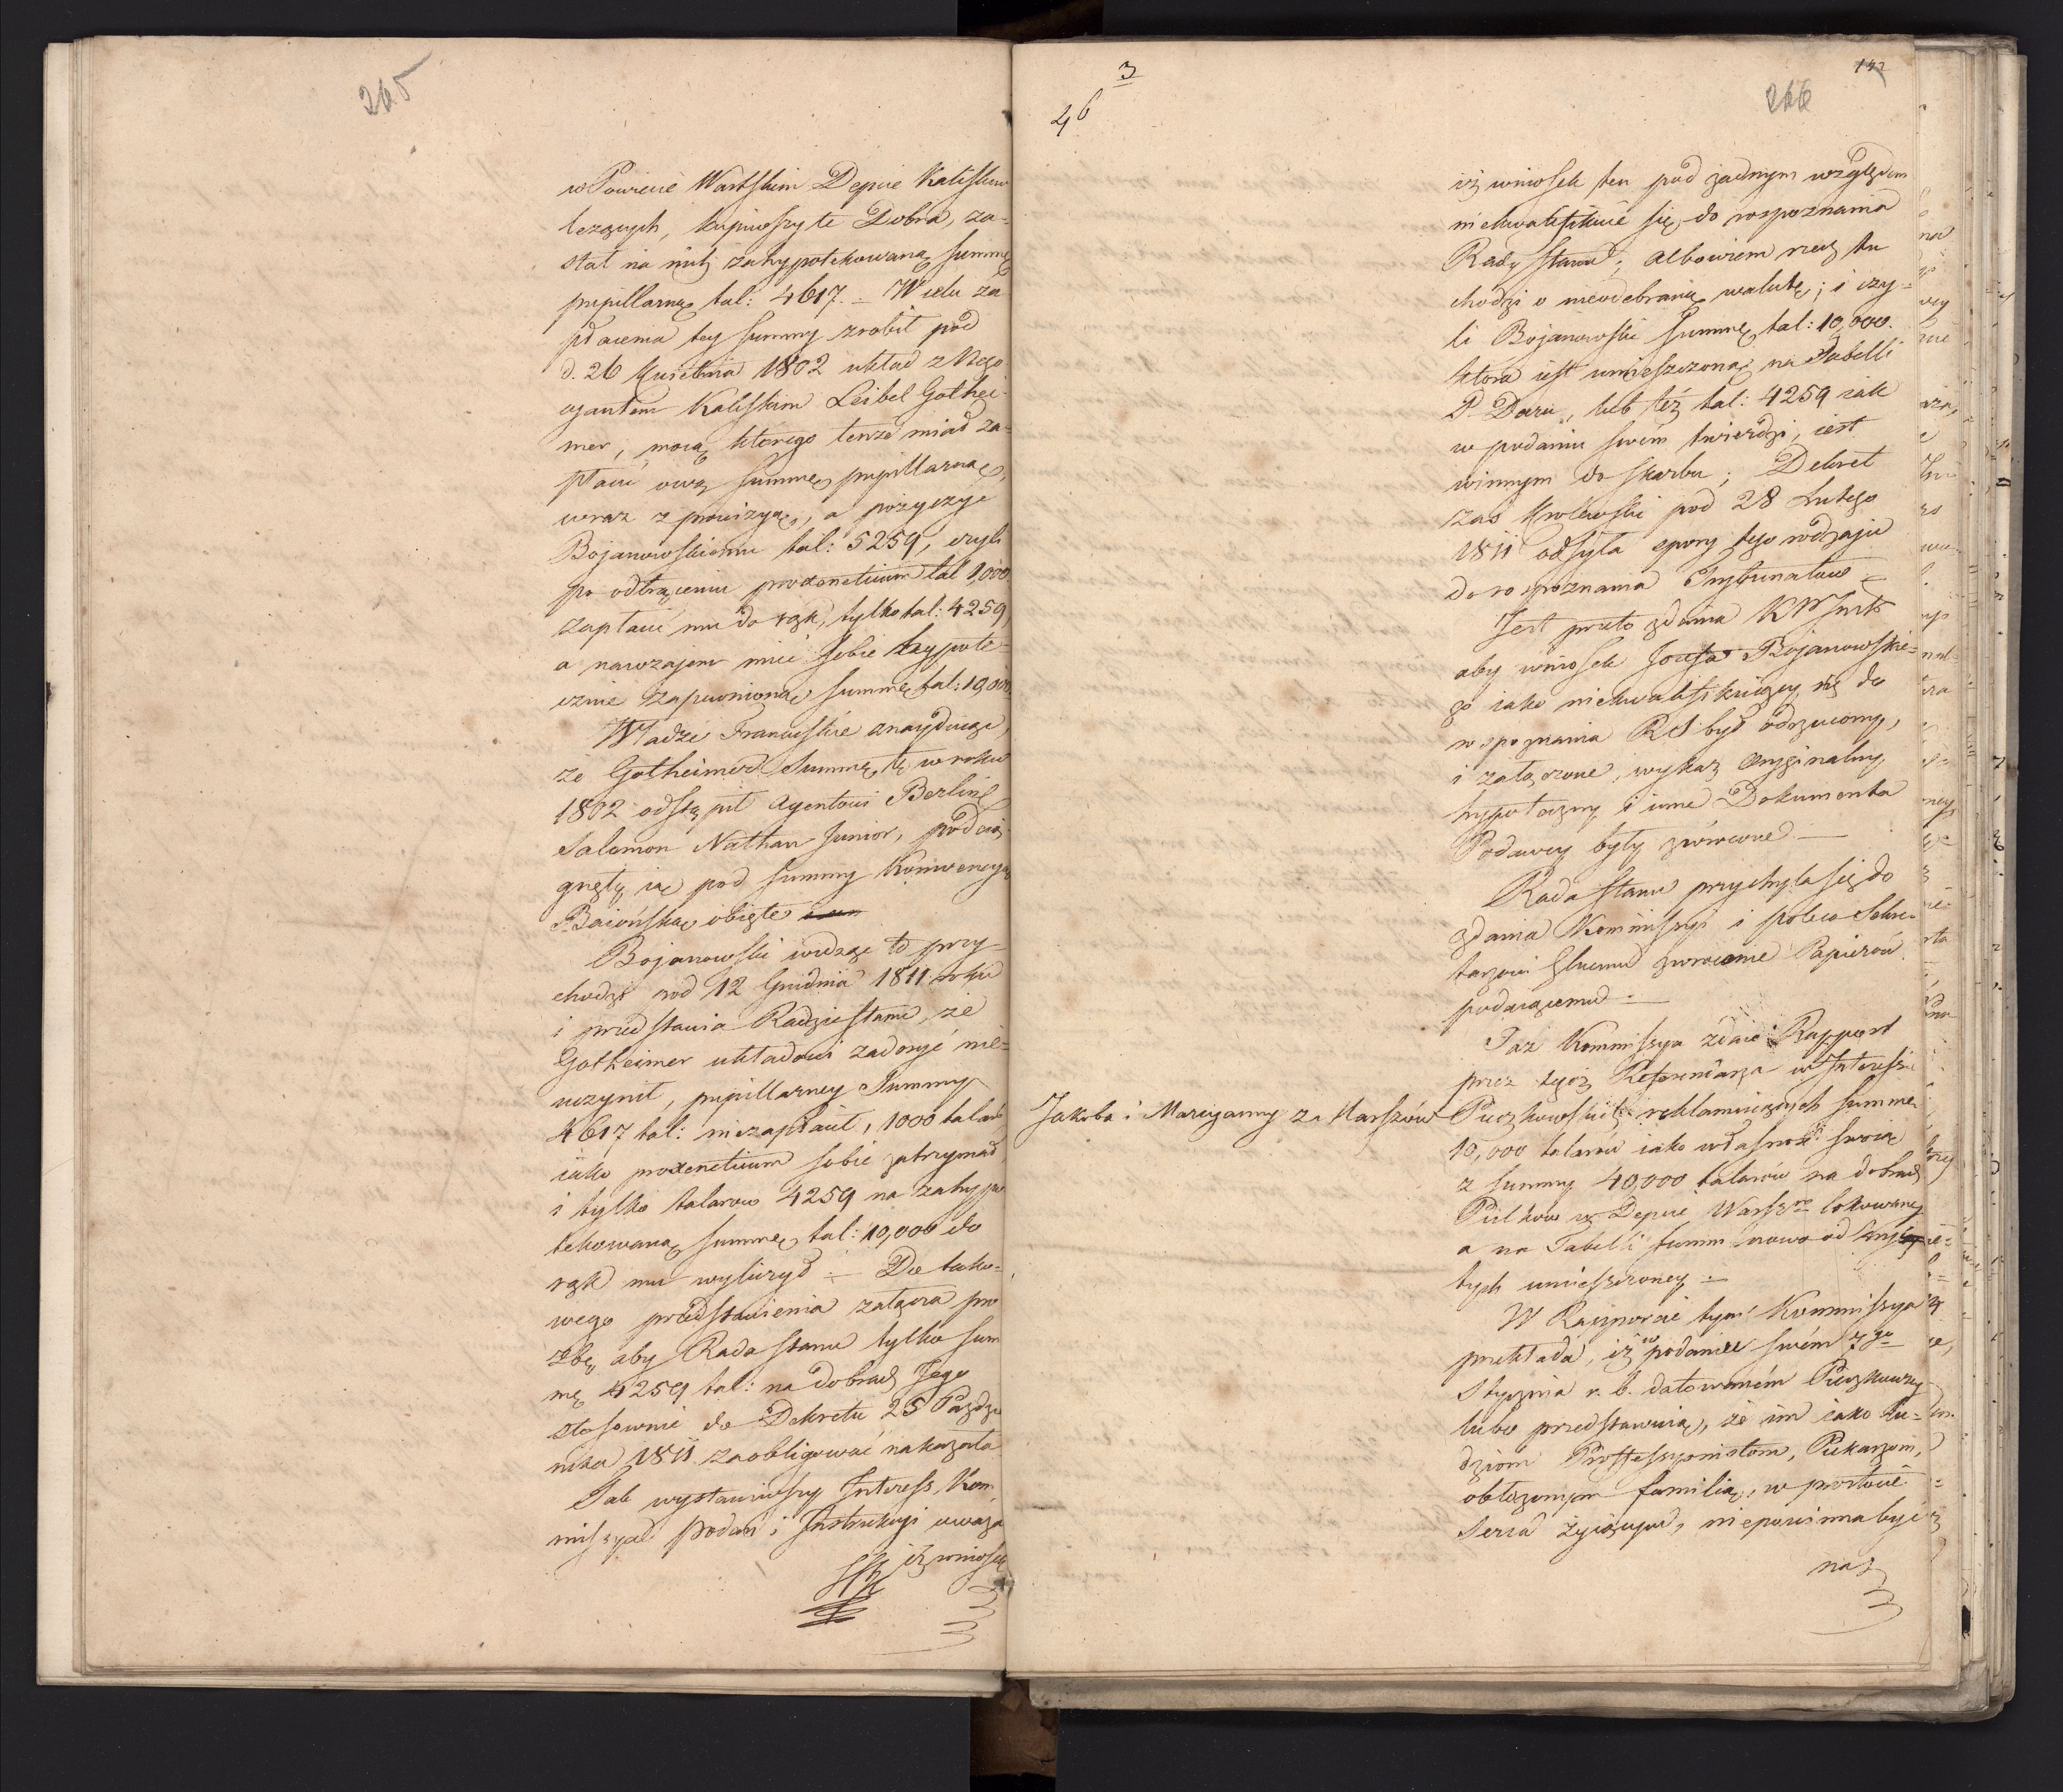 265
w Powiecie Wartskim Depcie Kaliskim
leżących, kupiwszy te Dobra, zo-
stał na nich zahypotekowaną summę
pupillarną tal: 4617. – W celu za
płacenia tey summy zrobił pod
d. 26 Kwietnia 1802 układ z Nego
cyantem Kaliskim Leibel Gothei-
mer, mocą którego tenże miał za-
płacić ową summę pupillarną,
wraz z prowizyą, a pożyczyć
Bojanowskiemu tal: 5259, czyli
po odtrąceniu proxeneticum tal 1,000.
zapłacić mu do rąk, tylko tal: 4259,
a nawzajem mieć sobie hypote-
cznie zapewnioną summę tal: 10,000.
Władze Francuskie znayduiąc,
że Gotheimer Summę tę w roku
1802 odstąpił Agentowi Berlin
Salomon Nathan Junior, podcią-
gnęły ią pod summy Konwencyą
Baiońską obięte
Bojanowski widząc to przy-
chodzi pod 12 Grudnia 1811 roku
i przedstawia Radzie Stanu, że
Gotheimer układowi zadosyć nie-
uczynił, pupillarney Summy
4617 tal: niezapłacił, 1000 talar:
iako proxeneticum sobie zatrzymał,
i tylko talarow 4259 na zahypo
tekowaną summę tal: 10,000 do
rąk mu wyliczył – Do tako-
wego przedstawienia załącza pro
źbę, aby Rada Stanu tylko sum
mę 4259 tal: na dobrach Jego
stosownie do Dekretu 25 Paździe
nika 1811 zaobligować nakazała
Tak wystawiwszy Interess, Kom
missya Podań i Instrukcyi uważa
iż wniosek
3
46
142
266
iż wniosek ten pod żadnym względem
niekwalifikuie się do rospoznania
Rady Stanu; albowiem rzecz tu
chodzi o nieodebraną walutę; i czy-
li Bojanowski summę tal: 10,000.
ktora iest umieszczona na Tabelli
P. Daru, lub też tal: 4259 iak
w podaniu swém twierdzi, iest
winnym do skarbu; Dekret
zas Krolewski pod 28 Lutego
1811 odsyła spory tego rodzaju
do rospoznania Trybunałow –
Jest przeto zdania K P Instr
aby wniosek Jozefa Bojanowskie-
go iako niekwalifikuiący się do
rospoznania RS był odrzucony,
i załączone, wykaz oryginalny
hypoteczny i inne Dokumenta
Podawcy były zwrócone –
Rada Stanu przychyla się do
zdania Kommissyi i poleca Sekre-
tarzowi Głnemu zwrocenie Papierów
podaiącemu –
Taż Kommissya zdaie Rapport
przez tegoż Referendarza w Interessie
Jakuba i Maryanny z Marszów
Pieczkowskich reklamuiących summę
10,000 talarow iako własność swoią
z summy 40,000 talarow na dobrach
w Depcie Warsz lokowaney
a na Tabelli summ nowo od
tych umieszczoney –
W Rapporcie tym Kommissya
przekłada, iż w podaniu swém 7go
Stycznia r. b. datowaném Pieczkowscy
lubo przedstawuią, że im iako Lu-
dziom Proffessyonistom, Piekarzom,
obłożonym familią, w prostocie
serca żyiącym, niepowinna być
nasz